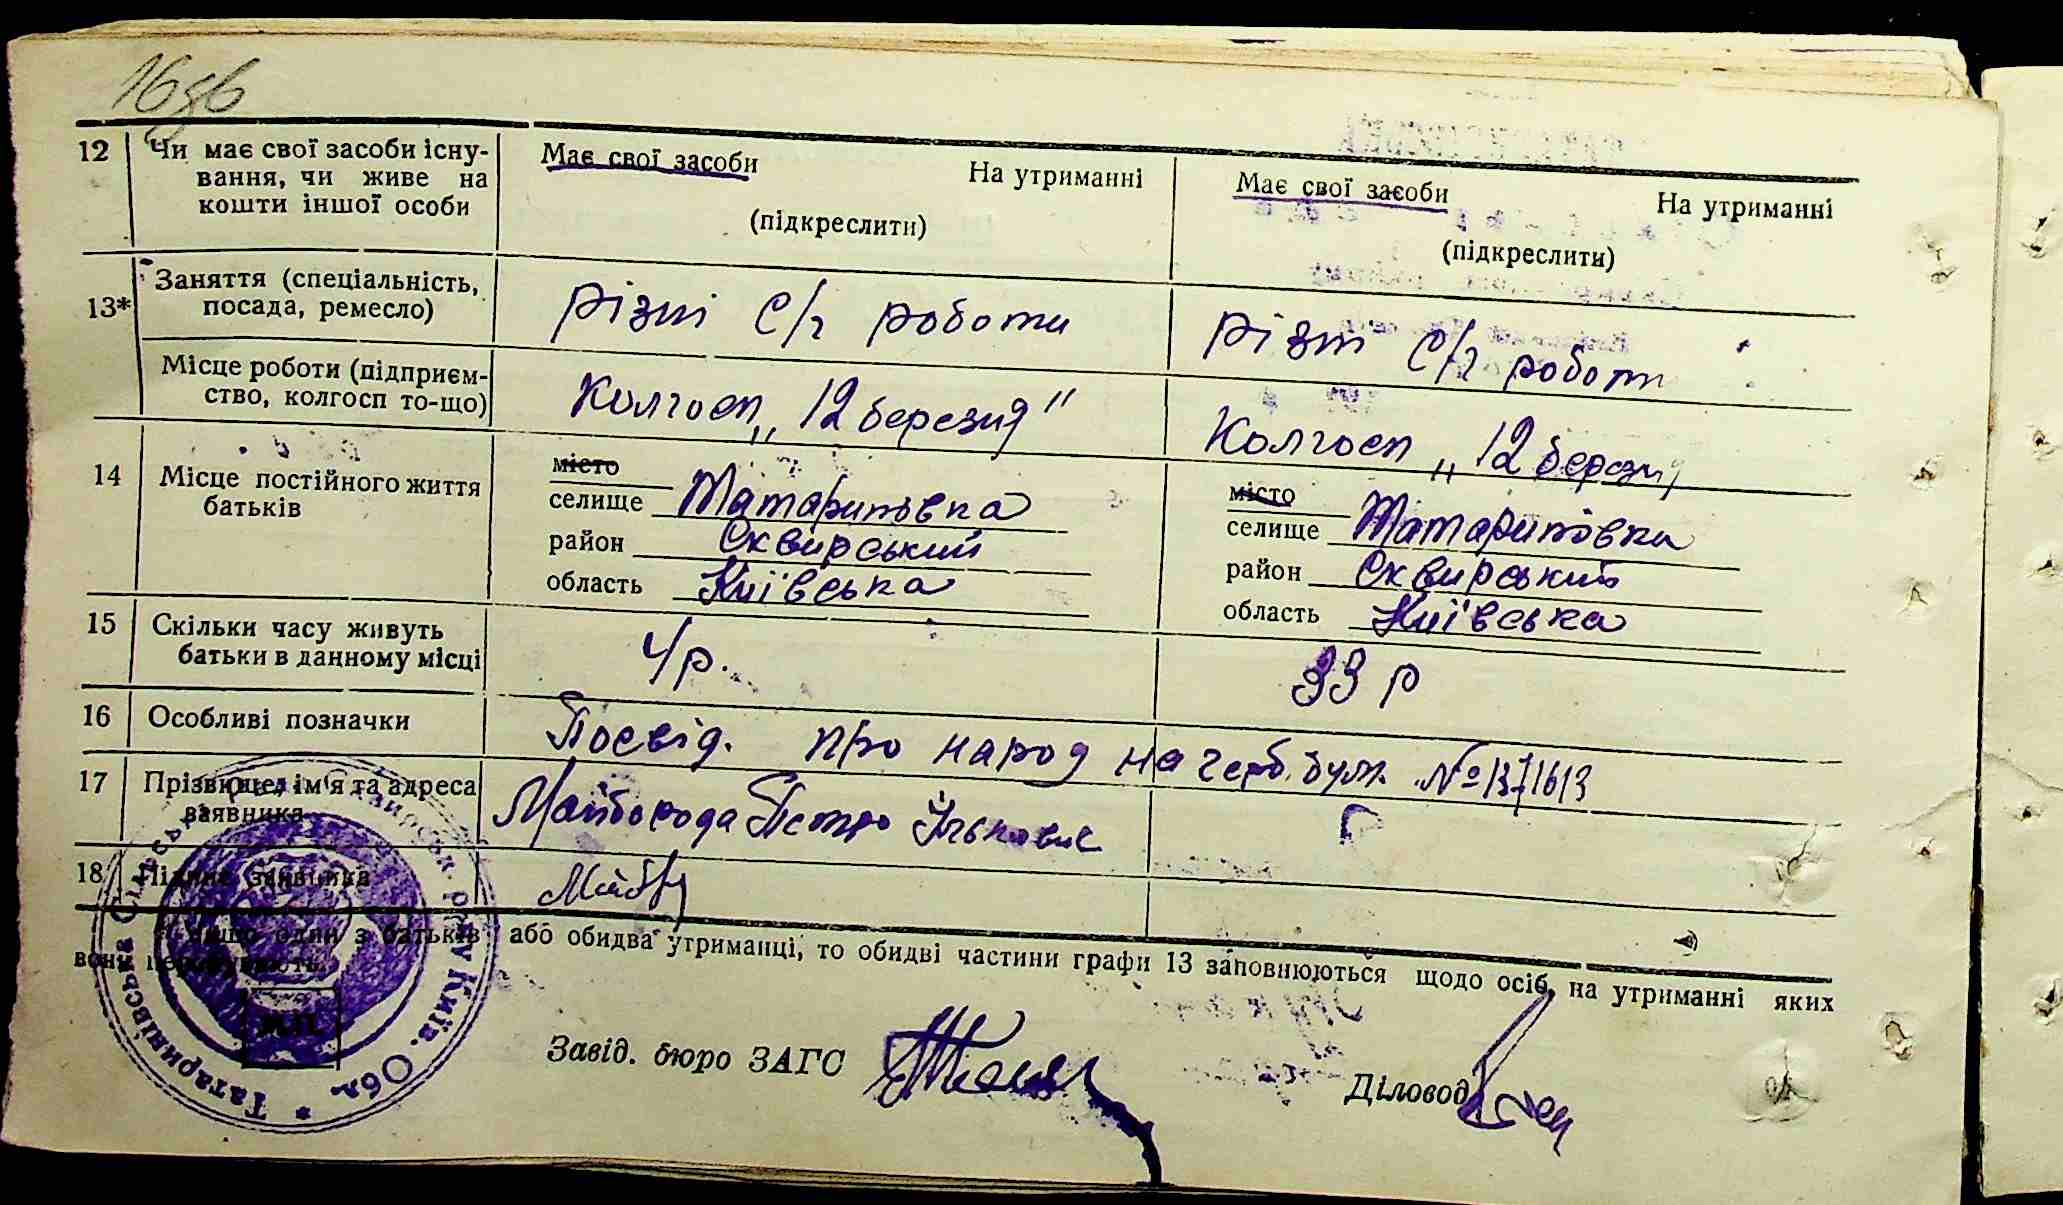 16зв
12 Чи має свої засоби існу-
вання, чи живе на
кошти іншої особи
Має свої засоби На утриманні
(підкреслити)
Має свої засоби На утриманні
(підкреслити)
13* Заняття (спеціальність,
посада, ремесло)
різні С/г роботи
різні С/г роботи
Місце роботи (підприєм-
ство, колгосп то-що)
Колгосп „12 березня"
Колгосп „12 березня
14 Місце постійного життя
батьків
місто
селище Татариновка
район Сквирський
область Київська
місто
селище Татариновка
район Сквирський
область Київська
15 Скільки часу живуть
батьки в данному місці
4р.
33 р
16 Особливі позначки
Посвід. про народ на герб. бум. № 1371613
17 Прізвище, ім'я та адреса
заявника
Майборода Петро Ількович
18 Підпис заявника
Якщо один з батьків або обидва утриманці, то обидві частини графи 13 заповнюються щодо осіб, на утриманні яких
вони перебувають.
Завід. бюро ЗАГС
Діловод
Татаринівська Сільська Рада Сквирськ. р-ну Київ. Обл.